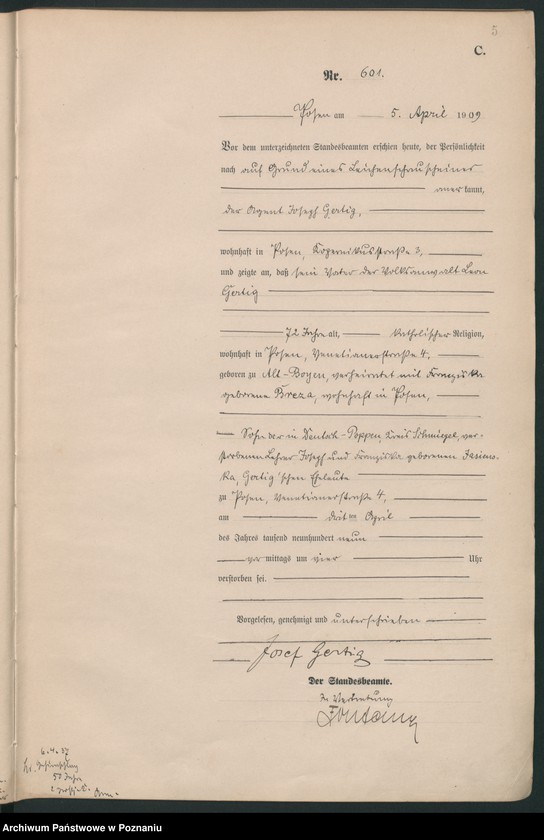 5
C.
Nr. 601.
Posen am 5. April 1909
Vor dem unterzeichneten Standesbeamten erschien heute, der Persönlichkeit
nach auf Grund eines Leichenschauscheines
anerkannt,
der Agent Joseph Gertig,
wohnhaft in Posen, Kopernikusstraße 3,
und zeigte an, daß sein Vater der Volksanwalt Leon
Gertig
72 Jahre alt, katholischer Religion,
wohnhaft in Posen, Venetianerstraße 4,
geboren zu Alt-Boyen, verheiratet mit Franziska
geborene Breza, wohnhaft in Posen,
Sohn der in Deutsch-Poppen, Kreis Schmiegel, ver-
storbenen Lehrer Joseph und Franziska geborenen
ka, Gertig'schen Eheleute
zu Posen, Venetianerstraße 4,
am dritten April
des Jahres tausend neunhundert neun
vormittags um vier Uhr
verstorben sei.
Vorgelesen, genehmigt und unterschrieben
Josef Gertig
Der Standesbeamte.
In Vertretung
6.4.37
50 Jahre
Archiwum Państwowe w Poznaniu